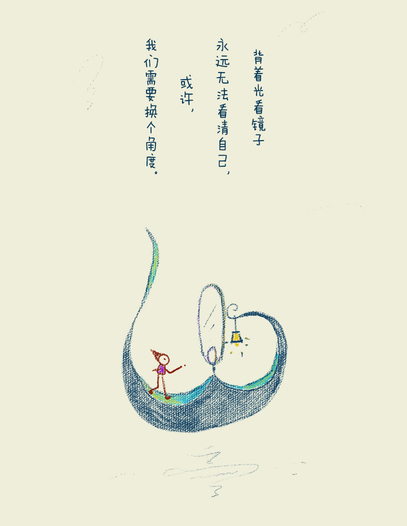 背着光看镜子
永远无法看清自己，
或许，
我们需要换个角度。